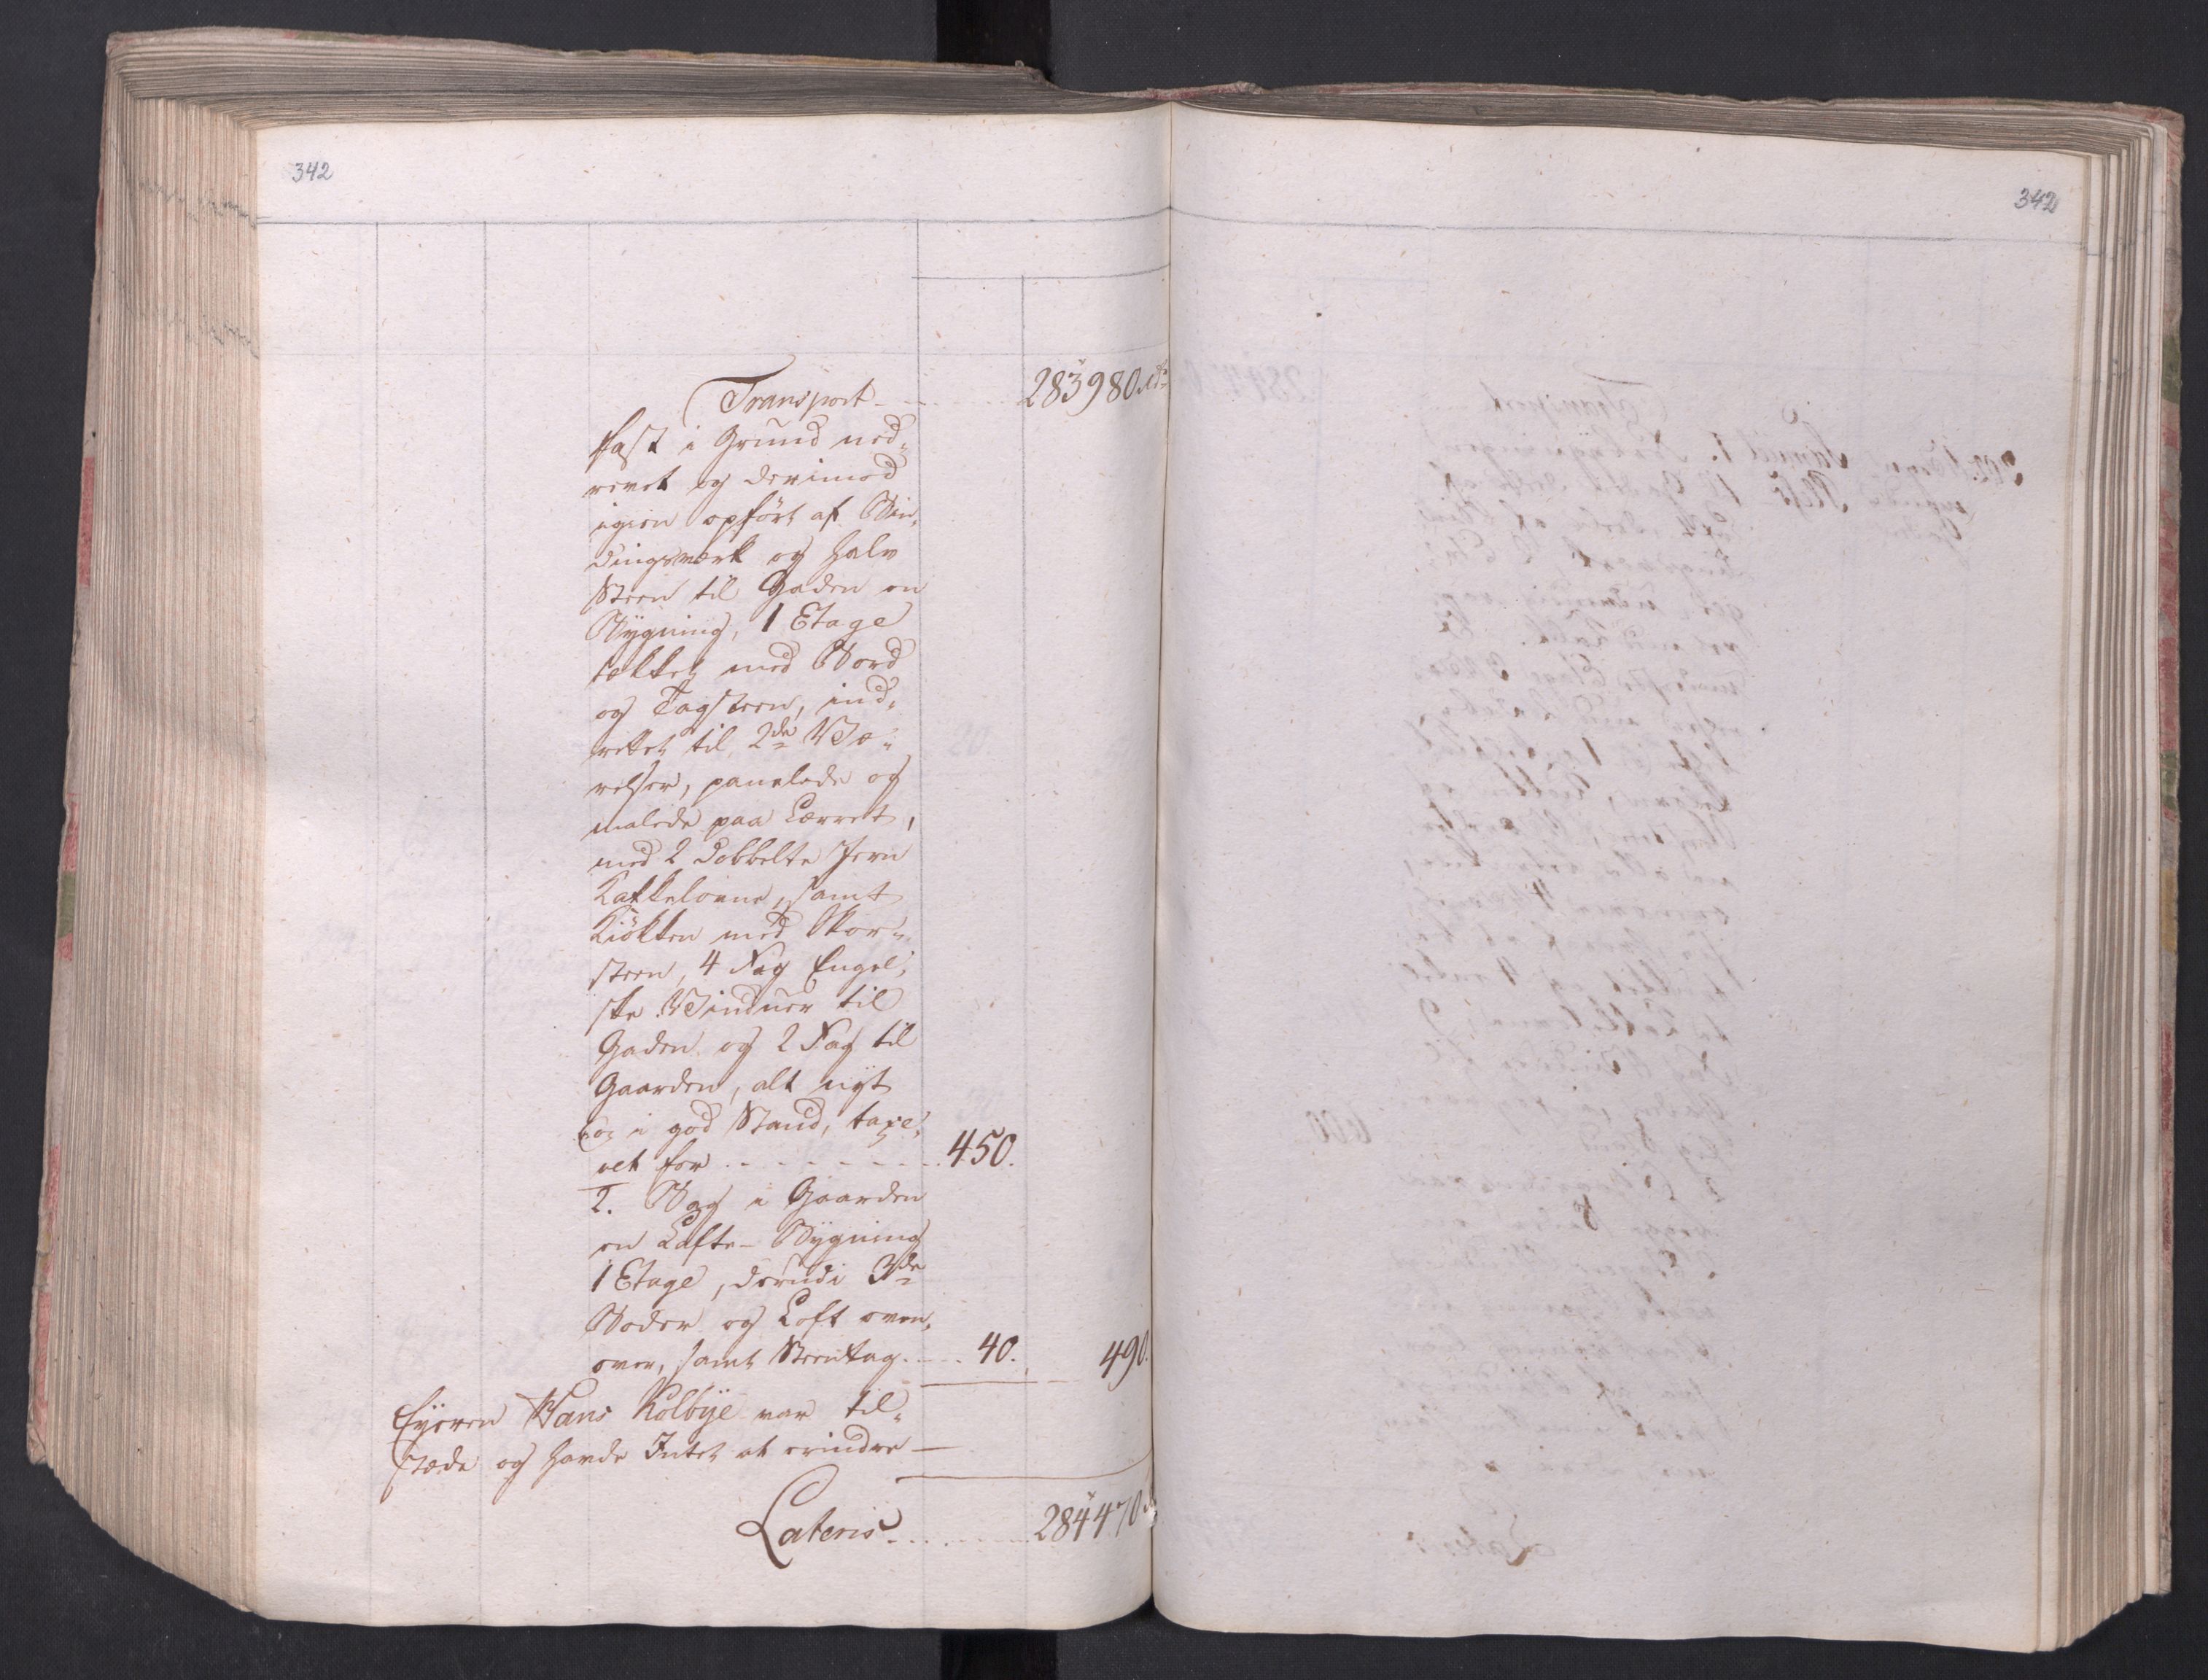 342
Transport - - - 283980 rd
fast i Grund ned-
revet og derimod
igien opført af Bin-
dingsværk og halv
Steen til Gaden en
Bygning, 1 Etage
tækket med Bord
og Tagsteen, ind-
rettet til 2de Væ-
relser, panelede og
malede paa Lærret,
med 2 dobbelte Jern
Kakkelovne, samt
Kiökken med Skor-
steen, 4 Fag Engel-
ske Vinduer til
Gaden og 2 Fag til
Gaarden, alt nyt
og i god Stand, taxe-
ret for - - - - 450.
2. Bag i Gaarden
en Lofte-Bygning
1 Etage, derudi 3de
Boder og Loft oven-
over, samt Steentag. - - 40. 490.
Eyeren Hans Kolbye var til-
stæde og havde Intet at erindre -
Lateris - - - 284470
342